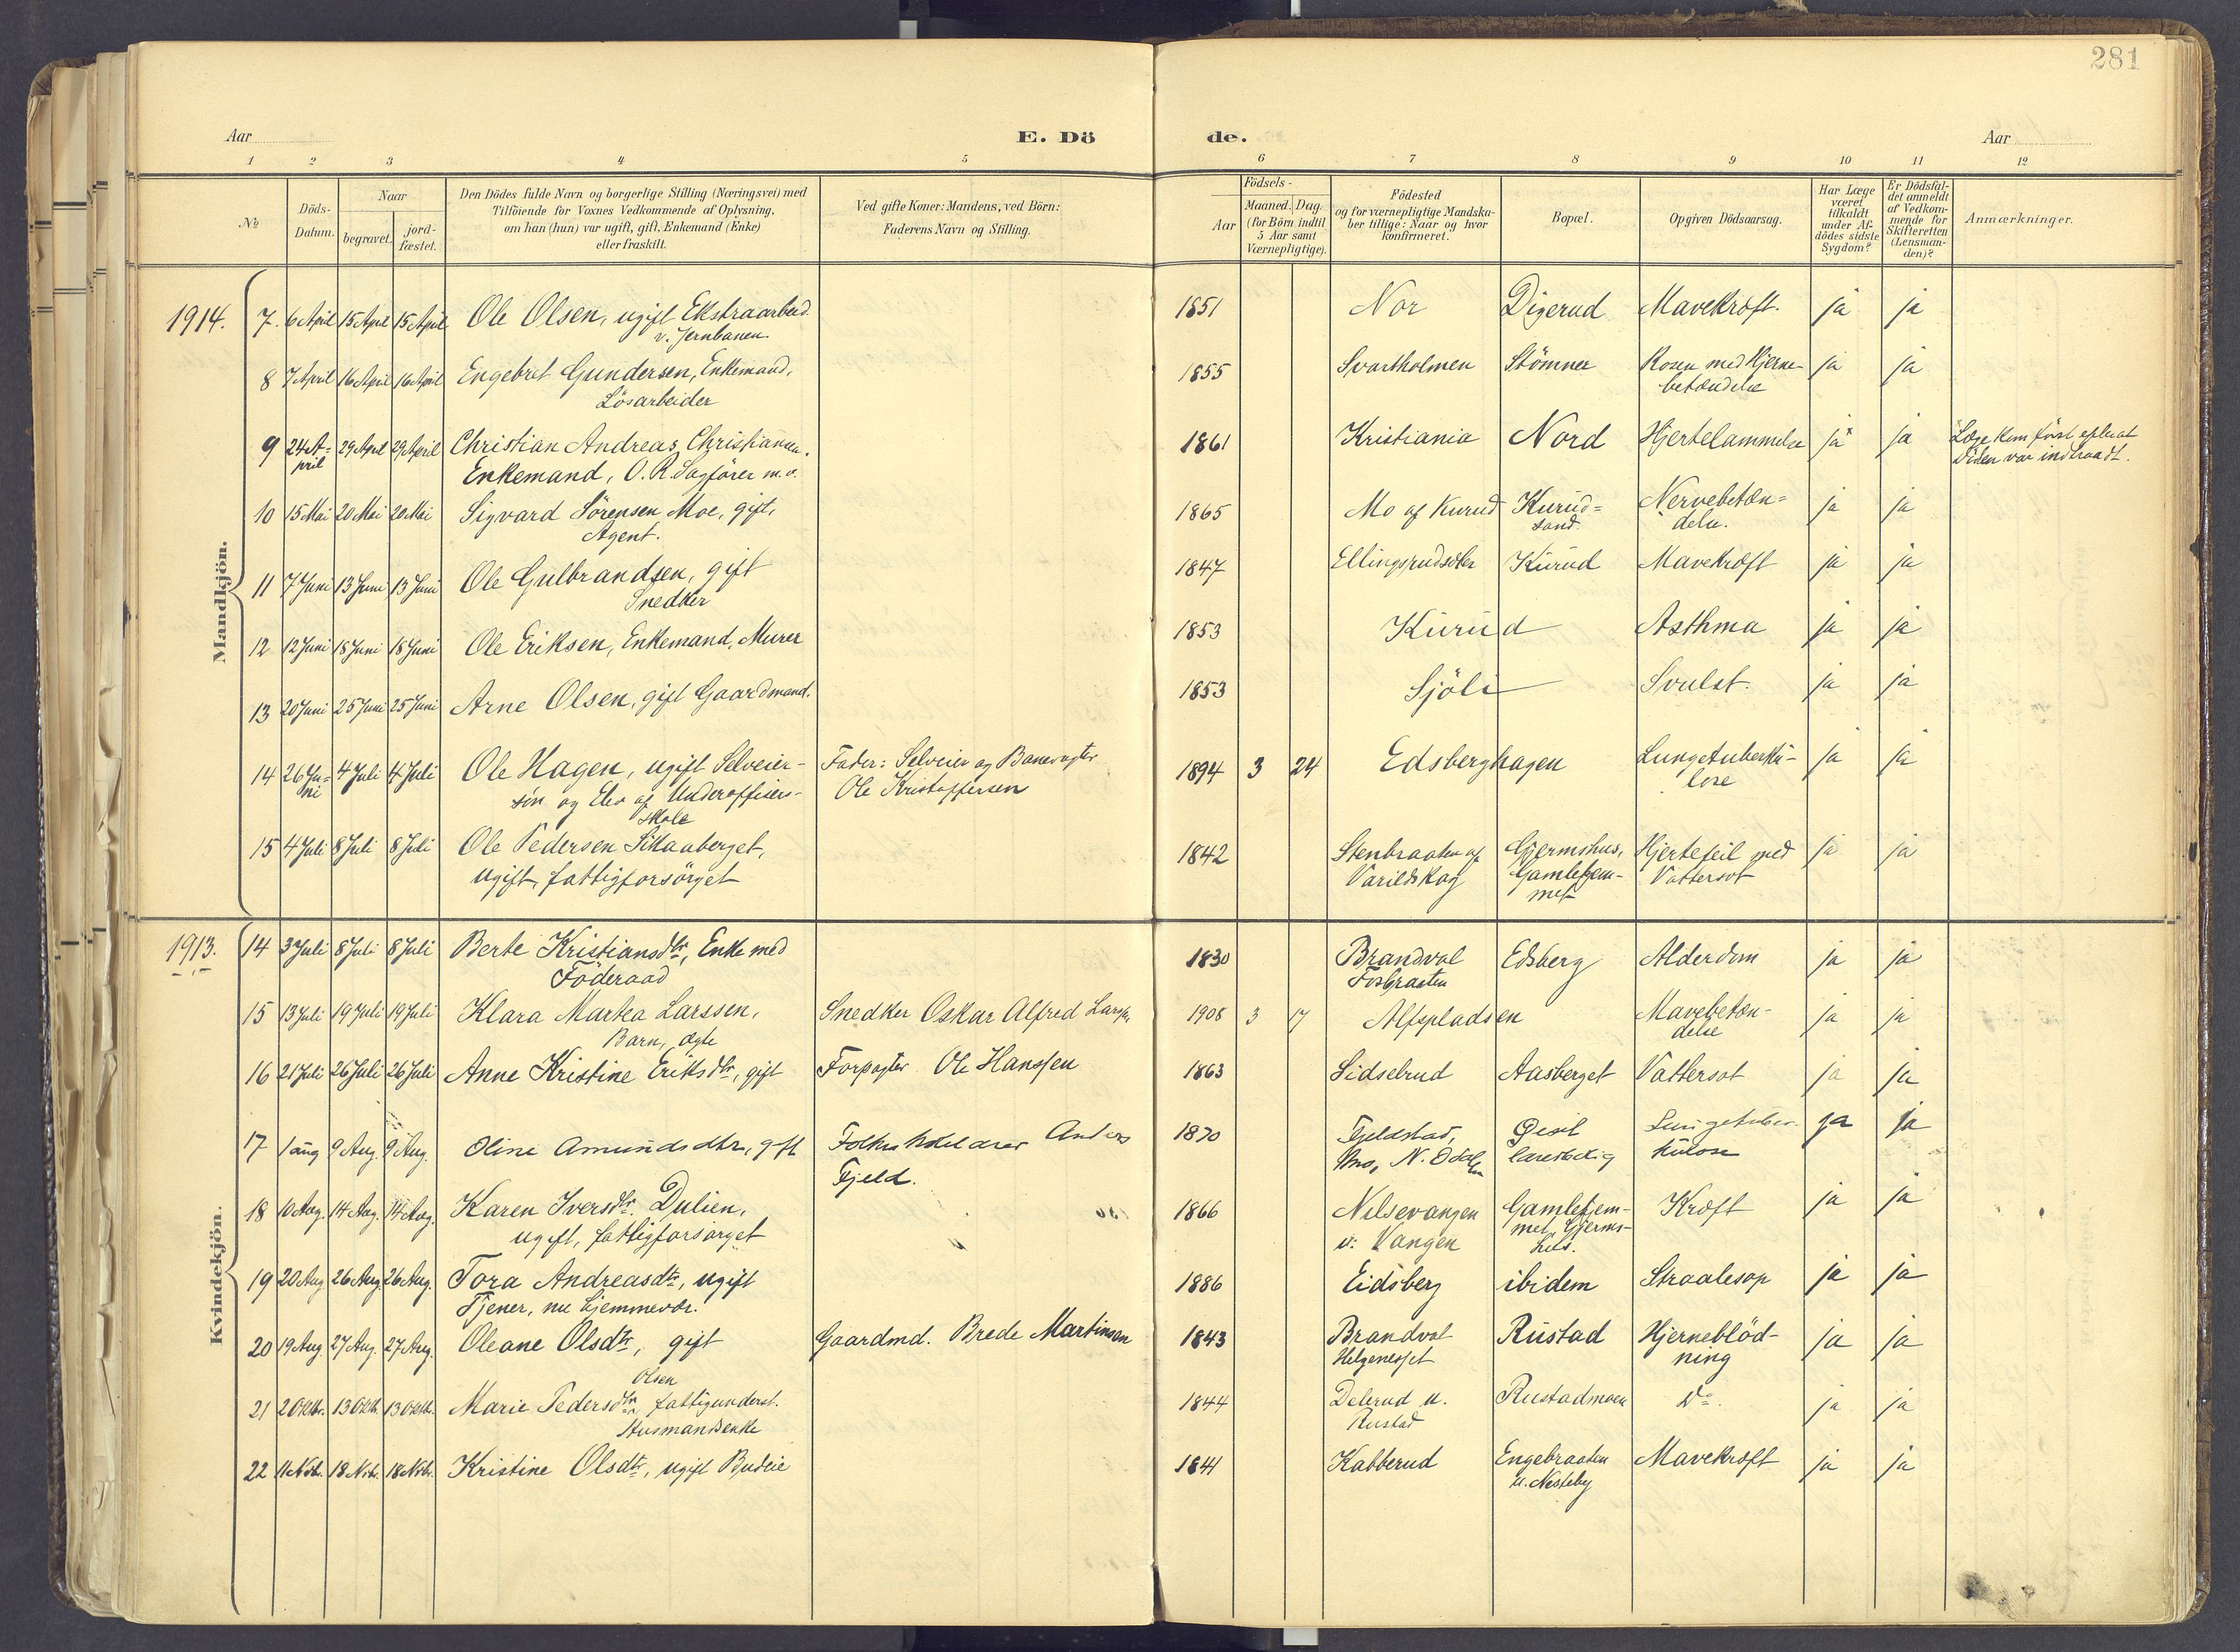 281
Aar
E. Dö
de.
Aar
1 2 3 4 5 6 7 8 9 10 11 12
№
Döds-
Datum.
Naar
begravet.
jord-
fæstet.
Den Dödes fulde Navn og borgerlige Stilling (Næringsvei) med
Tilföiende for Voxnes Vedkommende af Oplysning,
om han (hun) var ugift, gift, Enkemand (Enke)
eller fraskilt.
Ved gifte Koner: Mandens, ved Börn:
Faderens Navn og Stilling.
Födsels-
Aar
Maaned. Dag.
(for Börn indtil
5 Aar samt
Værnepligtige).
Födested
og for værnepligtige Mandska-
ber tillige: Naar og hvor
konfirmeret.
Bopæl.
Opgiven Dödsaarsag.
Har Læge
været
tilkaldt
under Af-
dödes sidste
Sygdom?
Er Dödsfal-
det anmeldt
af Vedkom-
mende for
Skifteretten
(Lensman-
den)?
Anmærkninger.
Mandkjön.
1914. 7. 6 April 15 April 15 April Ole Olsen, ugift Ekstraarbeid. 1851 Nor Digerud Mavekræft. ja ja
v. Jernbanen
8 7 April 16 April 16 April Engebret Gundersen, Enkemand, 1855 Svartholmen Stömner Rosen med Hjerne- ja ja
Lösarbeider betændelse
9 24 A- 29 April 29 April Christian Andreas Christiansen. 1861 Kristiania Nord Hjertelammelse ja* ja Læge kom först efterat
pril Enkemand, O. R. Sagförer m.v. Döden var indtraadt.
10 15 Mai 20 Mai 20 Mai Sigvard Sörensen Moe, gift, 1865 Mo af Kurud Kurud= Nervebetæn= ja ja
Agent. sand.
11 7 Juni 13 Juni 13 Juni Ole Gulbrandsen, gift 1847 Kurud Mavekræft ja ja
Snedker
12 12 Juni 18 Juni 18 Juni Ole Eriksen, Enkemand, Murer 1853 Kurud Asthma ja ja
13 20 Juni 25 Juni 25 Juni Arne Olsen, gift Gaardmand. 1853 Sjöli Svulst. ja ja
14 26 Ju- 4 Juli 4 Juli Ole Hagen, ugift Selveier- Fader: Selveier og Banevogter 1894 3 24 Edsberghagen Lungetuberku- ja ja
ni sön og Elev af Underofficers- Ole Kristoffersen lose
skole
15 4 Juli 8 Juli 8 Juli Ole Pedersen Skauberget, 1842 Stenbraaten af Gjermshus, Hjertefeil med ja ja
ugift, fattigforsörget Varildskog Gamlehjem- Vattersot
met
Kvindekjön.
1913. 14 3 Juli 8 Juli 8 Juli Berte Kristiansdtr, Enke med 1830 Brandval Edsberg Alderdom ja ja
Föderaad Fosbraaten
15 13 Juli 19 Juli 19 Juli Klara Martea Larssen, Snedker Oskar Alfred Larss. 1908 3 17 Alfspladsen Mavebetæn- ja ja
Barn, ægte delse
16 21 Juli 26 Juli 26 Juli Anne Kristine Eriksdtr, gift Forpagter Ole Hanssen 1863 Sidselrud Aasberget Vattersot ja ja
17 1 aug 9 Aug. 9 Aug. Oline Amundsdtr, gift Anders 1870 Fjeldstad, Lungetuber- ja ja
Fjeld. N. Odalen kulose
18 10 Aug. 14 Aug. 14 Aug. Karen Iversdtr. Dulien, 1866 Nilsevangen Gamlehjem- Kræft ja ja
ugift, fattigforsörget u. Vangen met, Gjerms-
hus.
19 20 Aug 26 Aug. 26 Aug. Tora Andreasdtr, ugift 1886 Eidsberg ibidem Straalesop ja ja
Tjener, nu hjemmevær.
20 19 Aug 27 Aug. 27 Aug. Oleane Olsdtr, gift Gaardmd. Brede Martinsen 1843 Brandval Rustad Hjerneblöd- ja ja
Helgenesset ning
Olsen
21 2 Oktbr. 13 Oktb. 13 Oktbr. Marie Pedersdtr, fattigunderst. 1844 Delerud u. Rustadmoen Do. ja ja
Husmandsenke Rustad
22 11 Nvbr. 18 Nvbr. 18 Nvbr. Kristine Olsdtr, ugift Budeie 1841 Kabberud Engebraaten Mavekræft ja ja
u. Nesteby